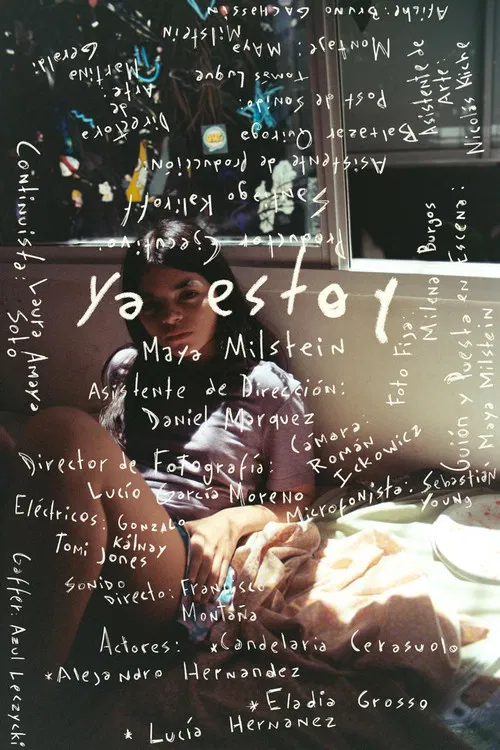 Afiche: Bruno Gachassin
Milstein
Montaje: Maya
Tomas Luque
Post de Sonido:
Baltazar Quiroga
Asistente de producción:
Santiago Kalikoff
Productor Ejecutivo:
Directora
de
Arte:
Martina
Geraldi
Asistente de
Arte:
Nicolás Kliche
ya estoy
Maya Milstein
Asistente de Dirección:
Daniel Marquez
Director de Fotografía:
Lucío García Moreno
Cámara:
Román
Ickowicz
Microfonista: Sebastián
Young
Eléctricos: Gonzalo
Kálnay
Tomi Jones
Sonido
Directo: Francisco
Montaña
Actores: *Candelaria Cerasuolo
*Alejandro Hernandez
*Eladia Grosso
*Lucía Hernanez
Continuista: Laura Amaya
Soto
Gaffer: Azul Leczycki
Foto Fija:
Milena Burgos
Guión y Puesta en Escena:
Maya Milstein